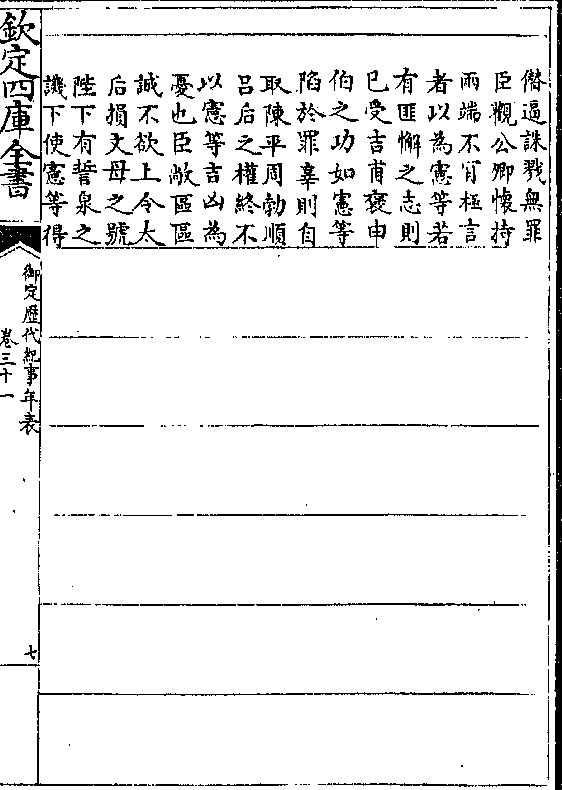 僭逼誅戮無罪
臣觀公卿懷持
兩端不肯極言
者以為憲等若
有匪懈之志則
已受吉甫褒申
伯之功如憲等
陷於罪辜則自
取陳平周勃順
呂后之權終不
以憲等吉凶為
憂也臣敞區區
誠不欲上令太
后損文母之號
陛下有誓泉之
譏下使憲等得
欽定四庫全書
御定歷代紀事年表
卷三十一
七